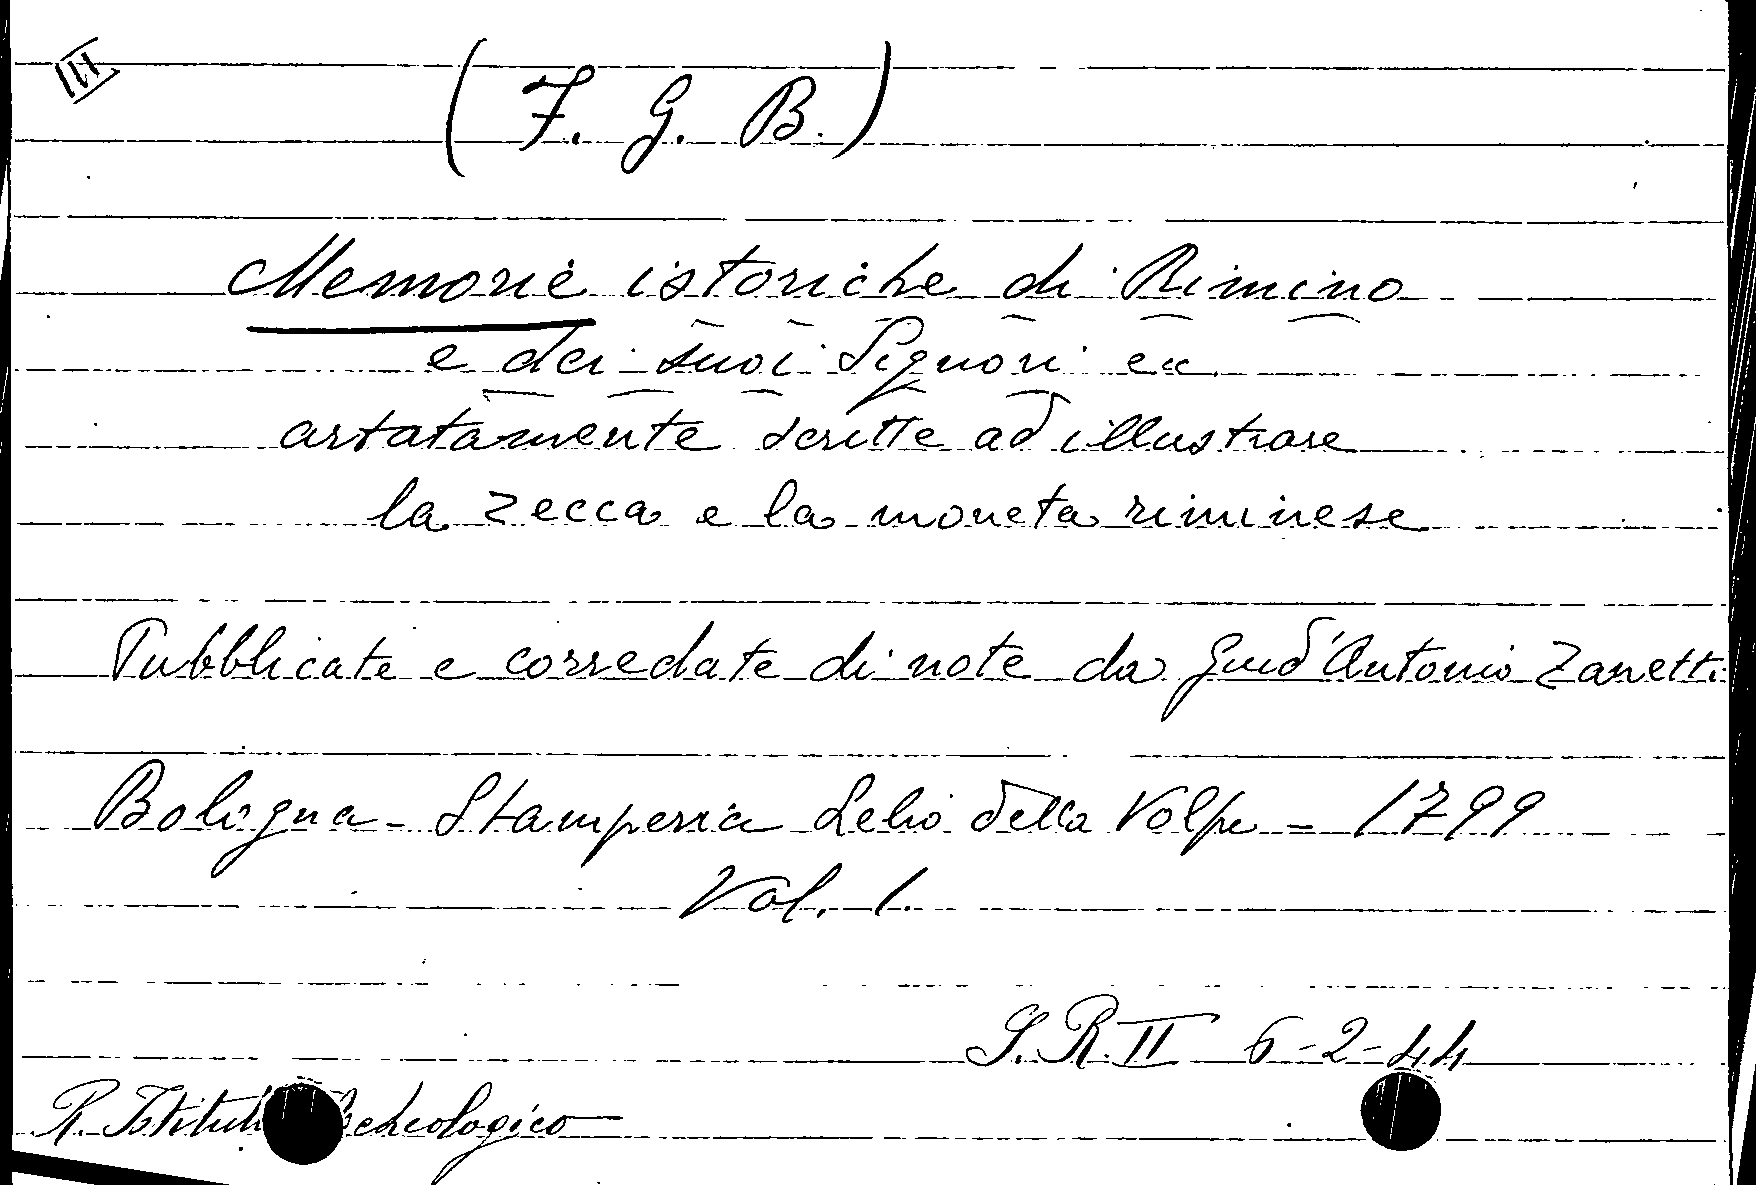 III
(F. G. B.)
Memorie istoriche di Rimino
e dei suoi Signori ec
artatamente scritte ad illustrare
la zecca e la moneta riminese
Pubblicate e corredate di note da Guid'Antonio Zanetti
Bologna - Stamperia Lelio della Volpe - 1799
Vol. 1.
S. R. II 6-2-44
R. Istituto Archeologico